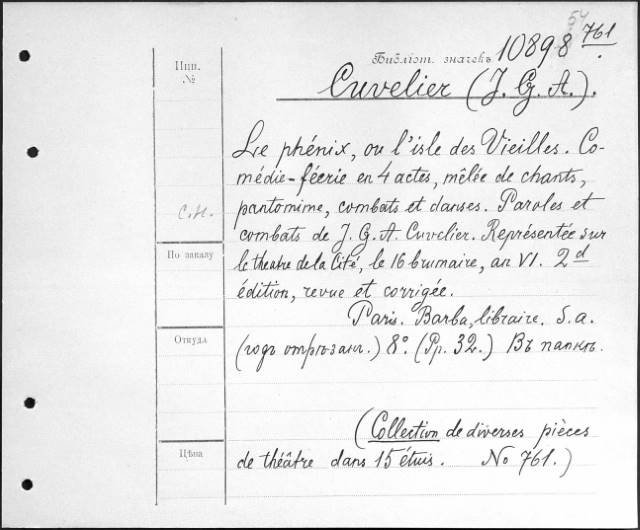 54
Библіот. значекъ 10898 761
Инв.
№
Cuvelier (J. G. A.).
Le phénix, ou l'isle des Vieilles. Co-
médie-féerie en 4 actes, mêlée de chants,
pantomime, combats et danses. Paroles et
combats de J. G. A. Cuvelier. Représentée sur
По заказу
le theatre de la Cité, le 16 brumaire, an VI. 2d
édition, revue et corrigée.
Paris. Barba, libraire. S. a.
Откуда
(годъ отрѣзанъ.) 8º. (Pp. 32.) Въ папкѣ.
(Collection de diverses pièces
Цѣна
de théâtre dans 15 étuis. No 761.)